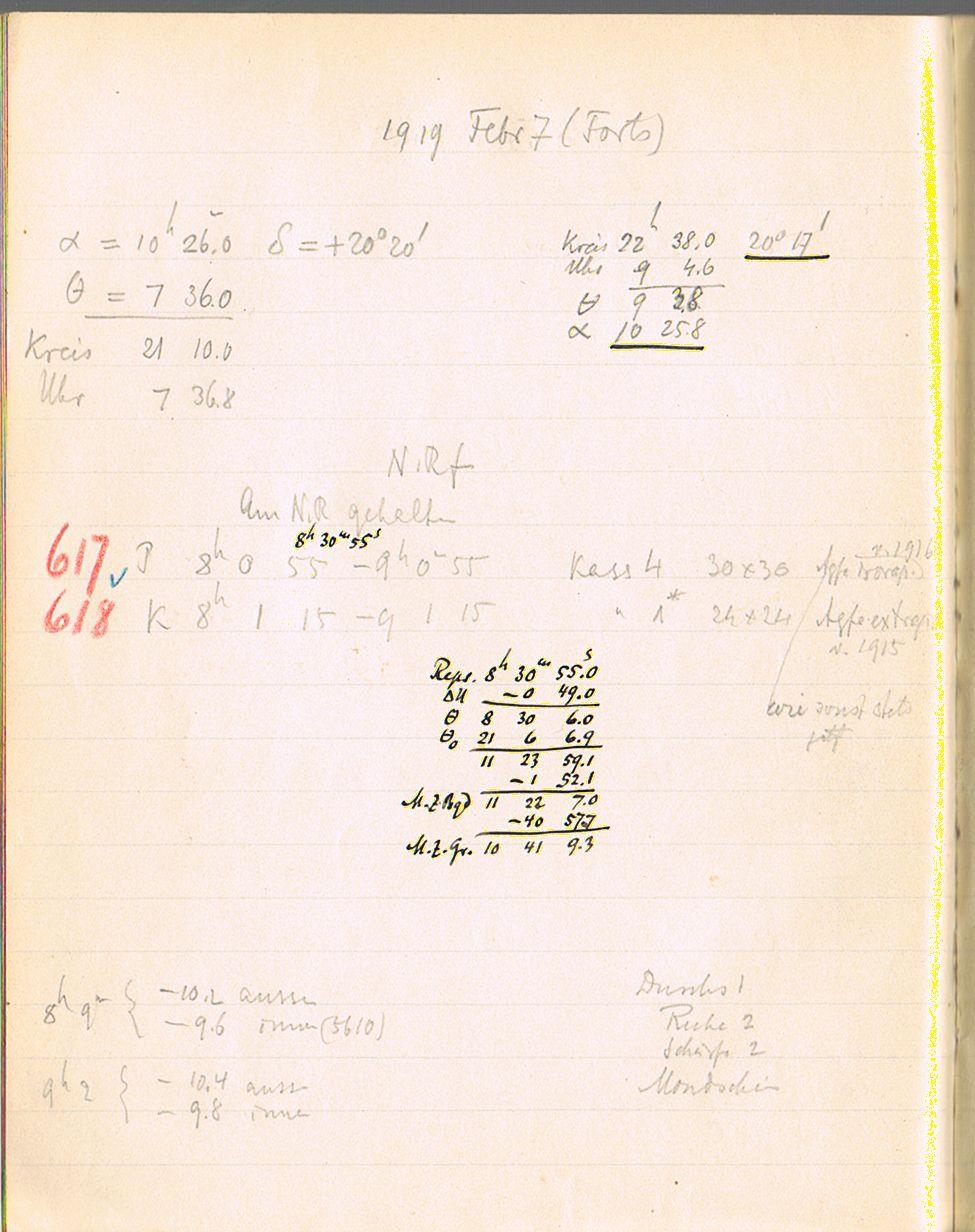 1919 Febr 7 (Forts)
α = 10ʰ 26.0 δ = +20° 20'
θ = 7 36.0
Kreis 21 10.0
Uhr 7 36.8
Kreis 22ʰ 38.0 20° 17'
Uhr 9 4.6
θ 9 3.8
α 10 25.8
N.R f
Am N.R gehalten
8ʰ 30ᵐ 55ˢ
617 P 8ʰ 0 55 – 9ʰ 0ᵐ 55 Kass 4 30×30 Agfa v. 1916
618 K 8ʰ 1 15 – 9 1 15 " 1* 24×24 Agfa extrap.
v. 1915
wie sonst stets
Reps. 8ʰ 30ᵐ 55.0ˢ
ΔU –0 49.0
θ 8 30 6.0
θ₀ 21 6 6.9
11 23 59.1
–1 52.1
M.Z.Bgd 11 22 7.0
–40 57.7
M.Z.Gr. 10 41 9.3
8ʰ 9ᵐ { –10.2 aussen
– 9.6 innen (5610)
9ʰ 2 { – 10.4 aussen
– 9.8 innen
Durchs 1
Ruhe 2
Schärfe 2
Mondschein